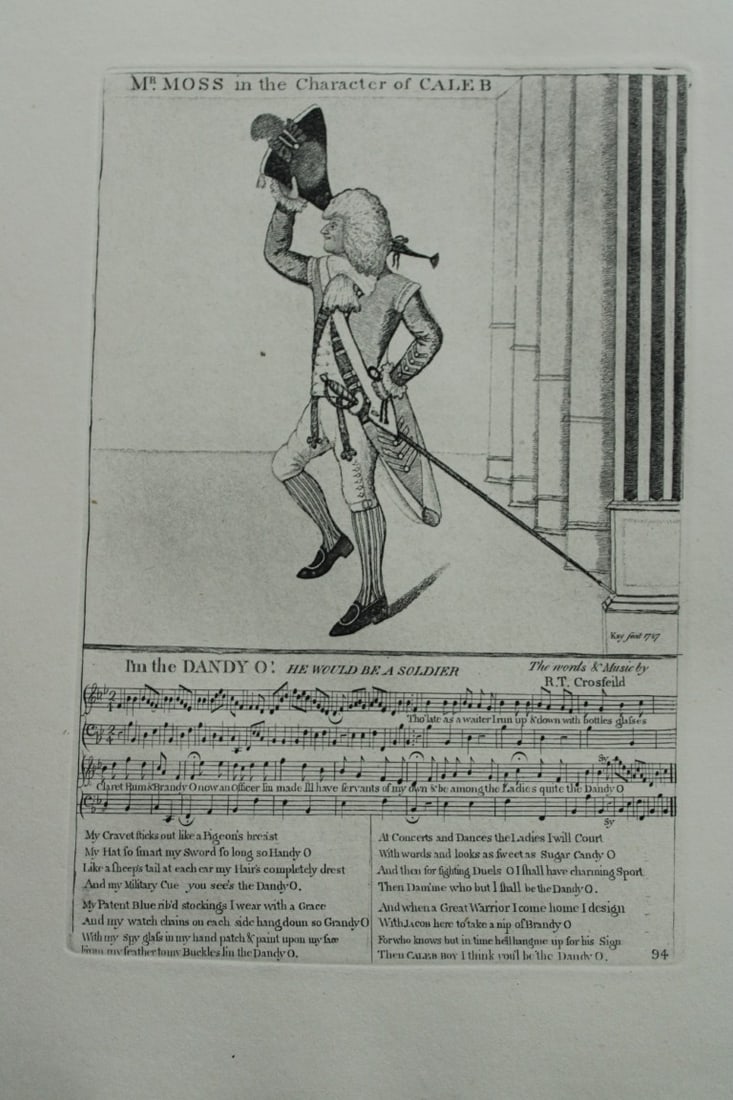 MR. MOSS in the Character of CALEB
Kay fecit 1787
I'm the DANDY O! HE WOULD BE A SOLDIER The words & Music by
R.T. Crosfeild
Tho' late as a waiter I run up & down with bottles glaſses
Sy
Claret Rum & Brandy O now an Officer I'm made I'll have ſervants of my own & be among the Ladies quite the Dandy O
Sy
My Cravet ſticks out like a Pigeon's breast
My Hat ſo ſmart my Sword ſo long so Handy O
Like a ſheep's tail at each ear my Hair's completely drest
And my Military Cue you see's the Dandy O.
My Patent Blue rib'd stockings I wear with a Grace
And my watch chains on each side hang doun so Grandy O
With my Spy glaſs in my hand patch & paint upon my face
From my feather to my Buckles I'm the Dandy O.
At Concerts and Dances the Ladies I will Court
With words and looks as ſweet as Sugar Candy O
And then for fighting Duels O I ſhall have charming Sport
Then Dam'me who but I ſhall be the Dandy O.
And when a Great Warrior I come home I design
With Jacon here to take a nip of Brandy O
For who knows but in time he'll hang me up for his Sign
Then CALEB BOY I think you'l be the Dandy O.
94